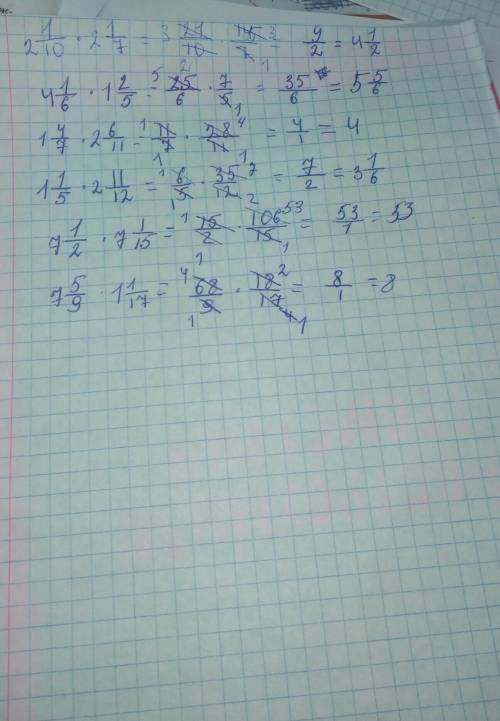 2 1/10 · 2 1/7 = 3 21/10 · 15/7 3 = 9/2 = 4 1/2
4 1/6 · 1 2/5 = 5 25/6 · 7/5 1 = 35/6 = 5 5/6
1 4/7 · 2 6/11 = 1 11/7 1 · 28/11 4 = 4/1 = 4
1 1/5 · 2 11/12 = 1 6/5 1 · 35/12 7 2 = 7/2 = 3 1/6
7 1/2 · 7 1/15 = 1 15/2 1 · 106/15 53 1 = 53/1 = 53
7 5/9 · 1 1/17 = 4 68/9 1 · 18/17 2 1 = 8/1 = 8